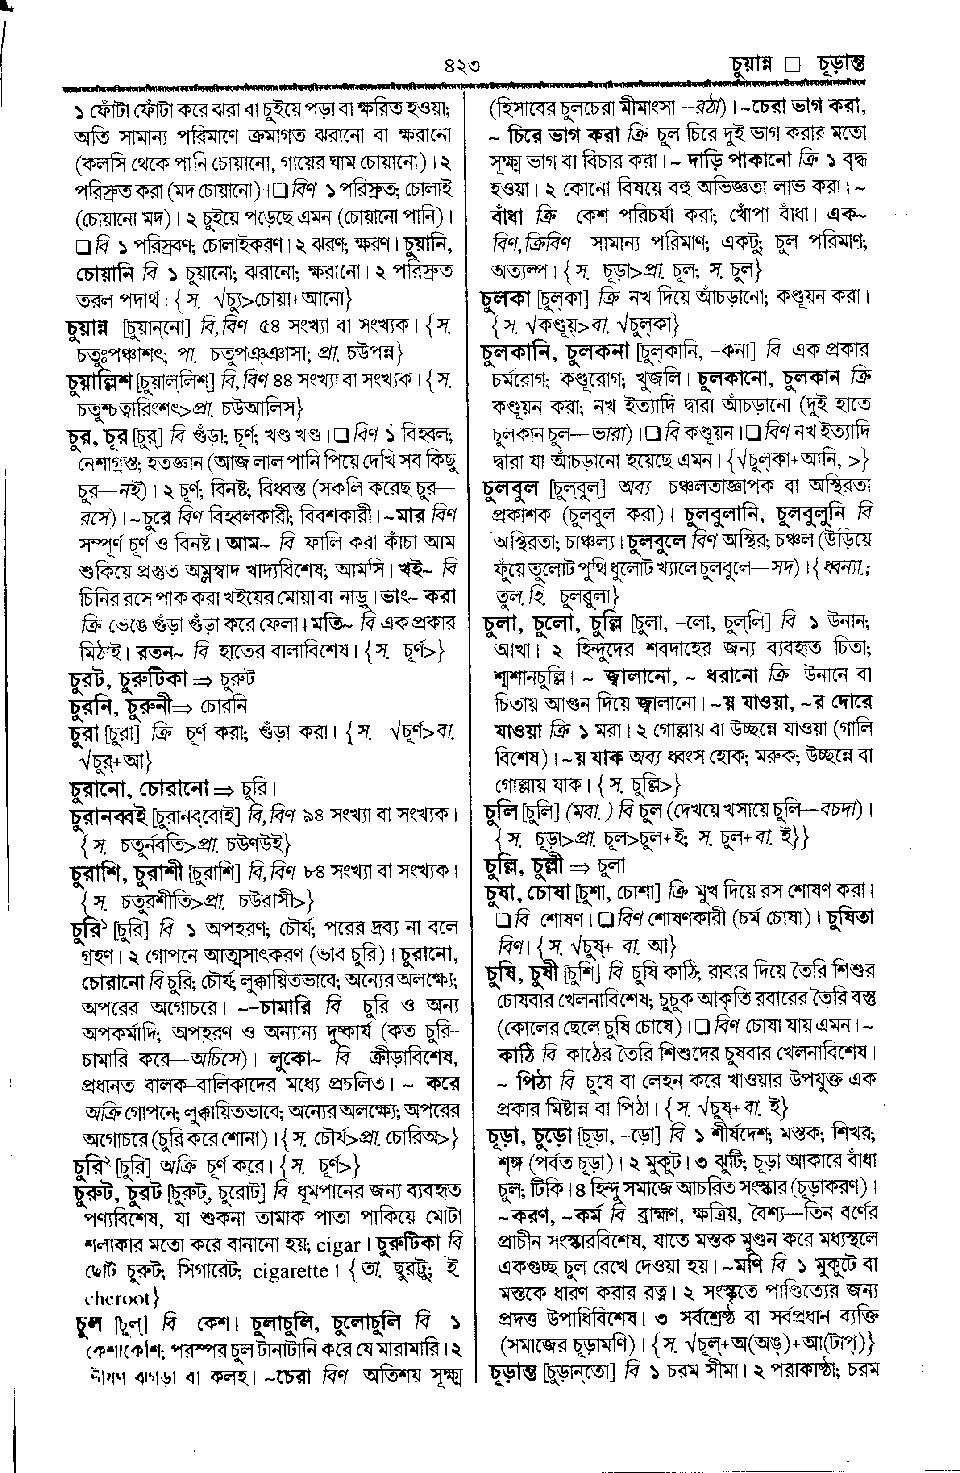 ৪২৩
চুয়ান্ন □ চূড়ান্ত
১ ফোঁটা ফোঁটা করে ঝরা বা চুইয়ে পড়া বা ক্ষরিত হওয়া;
অতি সামান্য পরিমাণে ক্রমাগত ঝরানো বা ক্ষরানো
(কলসি থেকে পানি চোয়ানো, গায়ের ঘাম চোয়ানো)। ২
পরিস্রুত করা (মদ চোয়ানো)। □ বিণ ১ পরিস্রুত; চোলাই
(চোয়ানো মদ)। ২ চুইয়ে পড়েছে এমন (চোয়ানো পানি)।
□ বি ১ পরিস্রবণ; চোলাইকরণ। ২ ঝরণ; ক্ষরণ। চুয়ানি,
চোয়ানি বি ১ চুয়ানো; ঝরানো; ক্ষরানো। ২ পরিস্রুত
তরল পদার্থ। {স. √চ্যু>চোয়া+আনো}
চুয়ান্ন [চুয়ান্‌নো] বি,বিণ ৫৪ সংখ্যা বা সংখ্যক। {স.
চতুঃপঞ্চাশৎ; পা. চতুপঞ্ঞাসা; প্রা. চউপন্ন}
চুয়াল্লিশ [চুয়াল্‌লিশ্] বি,বিণ ৪৪ সংখ্যা বা সংখ্যক। {স.
চতুশ্চত্বারিংশৎ>প্রা. চউআলিস}
চুর, চূর [চুর্] বি গুঁড়া; চূর্ণ; খণ্ড খণ্ড। □ বিণ ১ বিহ্বল;
নেশাগ্রস্ত; হতজ্ঞান (আজ লাল পানি পিয়ে দেখি সব কিছু
চুর—নই)। ২ চূর্ণ; বিনষ্ট; বিধ্বস্ত (সকলি করেছ চুর—
রসে)। ~চুরে বিণ বিহ্বলকারী; বিবশকারী। ~মার বিণ
সম্পূর্ণ চূর্ণ ও বিনষ্ট। আম~ বি ফালি করা কাঁচা আম
শুকিয়ে প্রস্তুত অম্লস্বাদ খাদ্যবিশেষ; আমসি। খই~ বি
চিনির রসে পাক করা খইয়ের মোয়া বা নাড়ু। ভাং~ করা
ক্রি ভেঙে গুঁড়া গুঁড়া করে ফেলা। মতি~ বি এক প্রকার
মিঠাই। রতন~ বি হাতের বালাবিশেষ। {স. চূর্ণ>}
চুরট, চুরুটিকা ⇒ চুরুট
চুরনি, চুরুনী ⇒ চোরনি
চুরা [চুরা] ক্রি চূর্ণ করা; গুঁড়া করা। {স. √চূর্ণ>বা.
√চূর্+আ}
চুরানো, চোরানো ⇒ চুরি।
চুরানব্বই [চুরানব্‌বোই] বি,বিণ ৯৪ সংখ্যা বা সংখ্যক।
{স. চতুর্নবতি>প্রা. চউণউই}
চুরাশি, চুরাশী [চুরাশি] বি,বিণ ৮৪ সংখ্যা বা সংখ্যক।
{স. চতুরশীতি>প্রা. চউরাসী>}
চুরি১ [চুরি] বি ১ অপহরণ; চৌর্য; পরের দ্রব্য না বলে
গ্রহণ। ২ গোপনে আত্মসাৎকরণ (ভাব চুরি)। চুরানো,
চোরানো বি চুরি; চৌর্য; লুক্কায়িতভাবে; অন্যের অলক্ষ্যে;
অপরের অগোচরে। ~–চামারি বি চুরি ও অন্য
অপকর্মাদি; অপহরণ ও অন্যান্য দুষ্কার্য (কত চুরি-
চামারি করে—অচিসে)। লুকো~ বি ক্রীড়াবিশেষ,
প্রধানত বালক-বালিকাদের মধ্যে প্রচলিত। ~ করে
অক্রি গোপনে; লুক্কায়িতভাবে; অন্যের অলক্ষ্যে; অপরের
অগোচরে (চুরি করে শোনা)। {স. চৌর্য>প্রা. চোরিঅ>}
চুরি২ [চুরি] অক্রি চূর্ণ করে। {স. চূর্ণ>}
চুরুট, চুরট [চুরুট্, চুরোট্] বি ধূমপানের জন্য ব্যবহৃত
পণ্যবিশেষ, যা শুকনা তামাক পাতা পাকিয়ে মোটা
শলাকার মতো করে বানানো হয়; cigar। চুরুটিকা বি
ছোট চুরুট; সিগারেট; cigarette। {তা. ছুরট্টু; ই
cheroot}
চুল [চুল্] বি কেশ। চুলাচুলি, চুলোচুলি বি ১
কেশাকেশি; পরস্পর চুল টানাটানি করে যে মারামারি। ২
ভীষণ ঝগড়া বা কলহ। ~চেরা বিণ অতিশয় সূক্ষ্ম
(হিসাবের চুলচেরা মীমাংসা –রঠা)। ~চেরা ভাগ করা,
~ চিরে ভাগ করা ক্রি চুল চিরে দুই ভাগ করার মতো
সূক্ষ্ম ভাগ বা বিচার করা। ~ দাড়ি পাকানো ক্রি ১ বৃদ্ধ
হওয়া। ২ কোনো বিষয়ে বহু অভিজ্ঞতা লাভ করা। ~
বাঁধা ক্রি কেশ পরিচর্যা করা; খোঁপা বাঁধা। এক~
বিণ,ক্রিবিণ সামান্য পরিমাণ; একটু; চুল পরিমাণ;
অত্যল্প। {স. চূড়া>প্রা. চূল; স. চুল}
চুলকা [চুল্‌কা] ক্রি নখ দিয়ে আঁচড়ানো; কণ্ডূয়ন করা।
{স. √কণ্ডূয়>বা. √চুল্‌কা}
চুলকানি, চুলকনা [চুল্‌কানি, -কনা] বি এক প্রকার
চর্মরোগ; কণ্ডূরোগ; খুজলি। চুলকানো, চুলকান ক্রি
কণ্ডূয়ন করা; নখ ইত্যাদি দ্বারা আঁচড়ানো (দুই হাতে
চুলকান চুল—ভারা)। □ বি কণ্ডূয়ন। □ বিণ নখ ইত্যাদি
দ্বারা যা আঁচড়ানো হয়েছে এমন। {√চুল্‌কা+আনি, >}
চুলবুল [চুল্‌বুল্] অব্য চঞ্চলতাজ্ঞাপক বা অস্থিরতা
প্রকাশক (চুলবুল করা)। চুলবুলানি, চুলবুলুনি বি
অস্থিরতা; চাঞ্চল্য। চুলবুলে বিণ অস্থির; চঞ্চল (উড়িয়ে
ফুঁয়ে তুলোট পুথি ধুলোট খ্যালে চুলবুলে—সদ)। {ধ্বন্যা.;
তুল. হি. চুলবুলা}
চুলা, চুলো, চুল্লি [চুলা, -লো, চুল্‌লি] বি ১ উনান;
আখা। ২ হিন্দুদের শবদাহের জন্য ব্যবহৃত চিতা;
শ্মশানচুল্লি। ~ জ্বালানো, ~ ধরানো ক্রি উনানে বা
চিতায় আগুন দিয়ে জ্বালানো। ~য় যাওয়া, ~র দোরে
যাওয়া ক্রি ১ মরা। ২ গোল্লায় বা উচ্ছন্নে যাওয়া (গালি
বিশেষ)। ~য় যাক অব্য ধ্বংস হোক; মরুক; উচ্ছন্নে বা
গোল্লায় যাক। {স. চুল্লি>}
চুলি [চুলি] (মবা.) বি চুল (দেখয়ে খসায়ে চুলি—বচদা)।
{স. চূড়া>প্রা. চূল>চুল+ই; স. চুল+বা. ই}}
চুল্লি, চুল্লী ⇒ চুলা
চুষা, চোষা [চুশা, চোশা] ক্রি মুখ দিয়ে রস শোষণ করা।
□ বি শোষণ। □ বিণ শোষণকারী (চর্ম চোষা)। চুষিতা
বিণ। {স. √চুষ্+ বা. আ}
চুষি, চুষী [চুশি] বি চুষি কাঠি; রাবার দিয়ে তৈরি শিশুর
চোষবার খেলনাবিশেষ; চুচুক আকৃতি রবারের তৈরি বস্তু
(কোলের ছেলে চুষি চোষে)। □ বিণ চোষা যায় এমন। ~
কাঠি বি কাঠের তৈরি শিশুদের চুষবার খেলনাবিশেষ।
~ পিঠা বি চুষে বা লেহন করে খাওয়ার উপযুক্ত এক
প্রকার মিষ্টান্ন বা পিঠা। {স. √চূষ্+ বা. ই}
চূড়া, চুড়ো [চূড়া, -ড়ো] বি ১ শীর্ষদেশ; মস্তক; শিখর;
শৃঙ্গ (পর্বত চূড়া)। ২ মুকুট। ৩ ঝুটি; চূড়া আকারে বাঁধা
চুল; টিকি। ৪ হিন্দু সমাজে আচরিত সংস্কার (চূড়াকরণ)।
~করণ, ~কর্ম বি ব্রাহ্মণ, ক্ষত্রিয়, বৈশ্য—তিন বর্ণের
প্রাচীন সংস্কারবিশেষ, যাতে মস্তক মুণ্ডন করে মধ্যস্থলে
একগুচ্ছ চুল রেখে দেওয়া হয়। ~মণি বি ১ মুকুটে বা
মস্তকে ধারণ করার রত্ন। ২ সংস্কৃতে পাণ্ডিত্যের জন্য
প্রদত্ত উপাধিবিশেষ। ৩ সর্বশ্রেষ্ঠ বা সর্বপ্রধান ব্যক্তি
(সমাজের চূড়ামণি)। {স. √চুল্+অ(অঙ্)+আ(টাপ্)}
চূড়ান্ত [চুড়ান্‌তো] বি ১ চরম সীমা। ২ পরাকাষ্ঠা; চরম